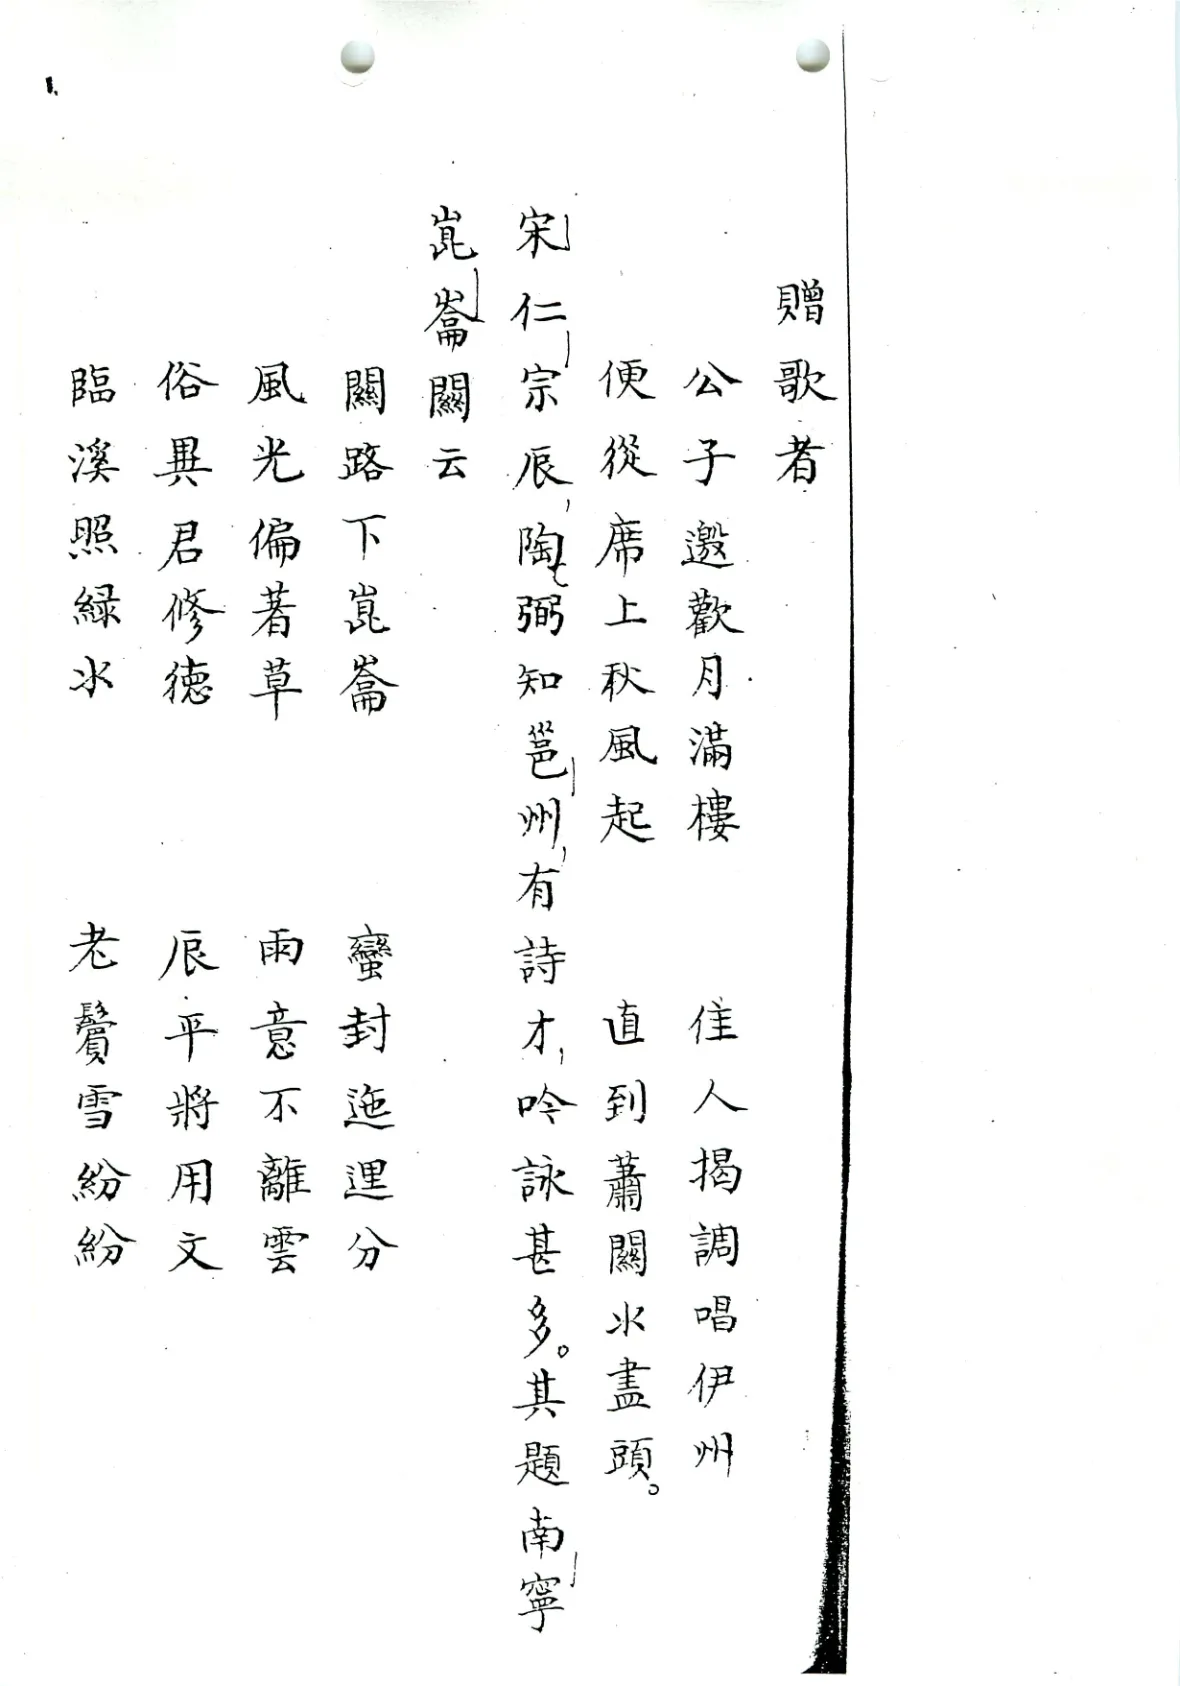 1.
贈歌者
公子邀歡月滿樓 佳人揭調唱伊州
便從席上秋風起 直到蕭關水盡頭。
宋仁宗辰,陶弼知邕州,有詩才,吟詠甚多。其題南寧
崑崙關云
關路下崑崙 蠻封迤逦分
風光偏著草 雨意不離雲
俗異君修德 辰平將用文
臨溪照緑水 老鬢雪紛紛